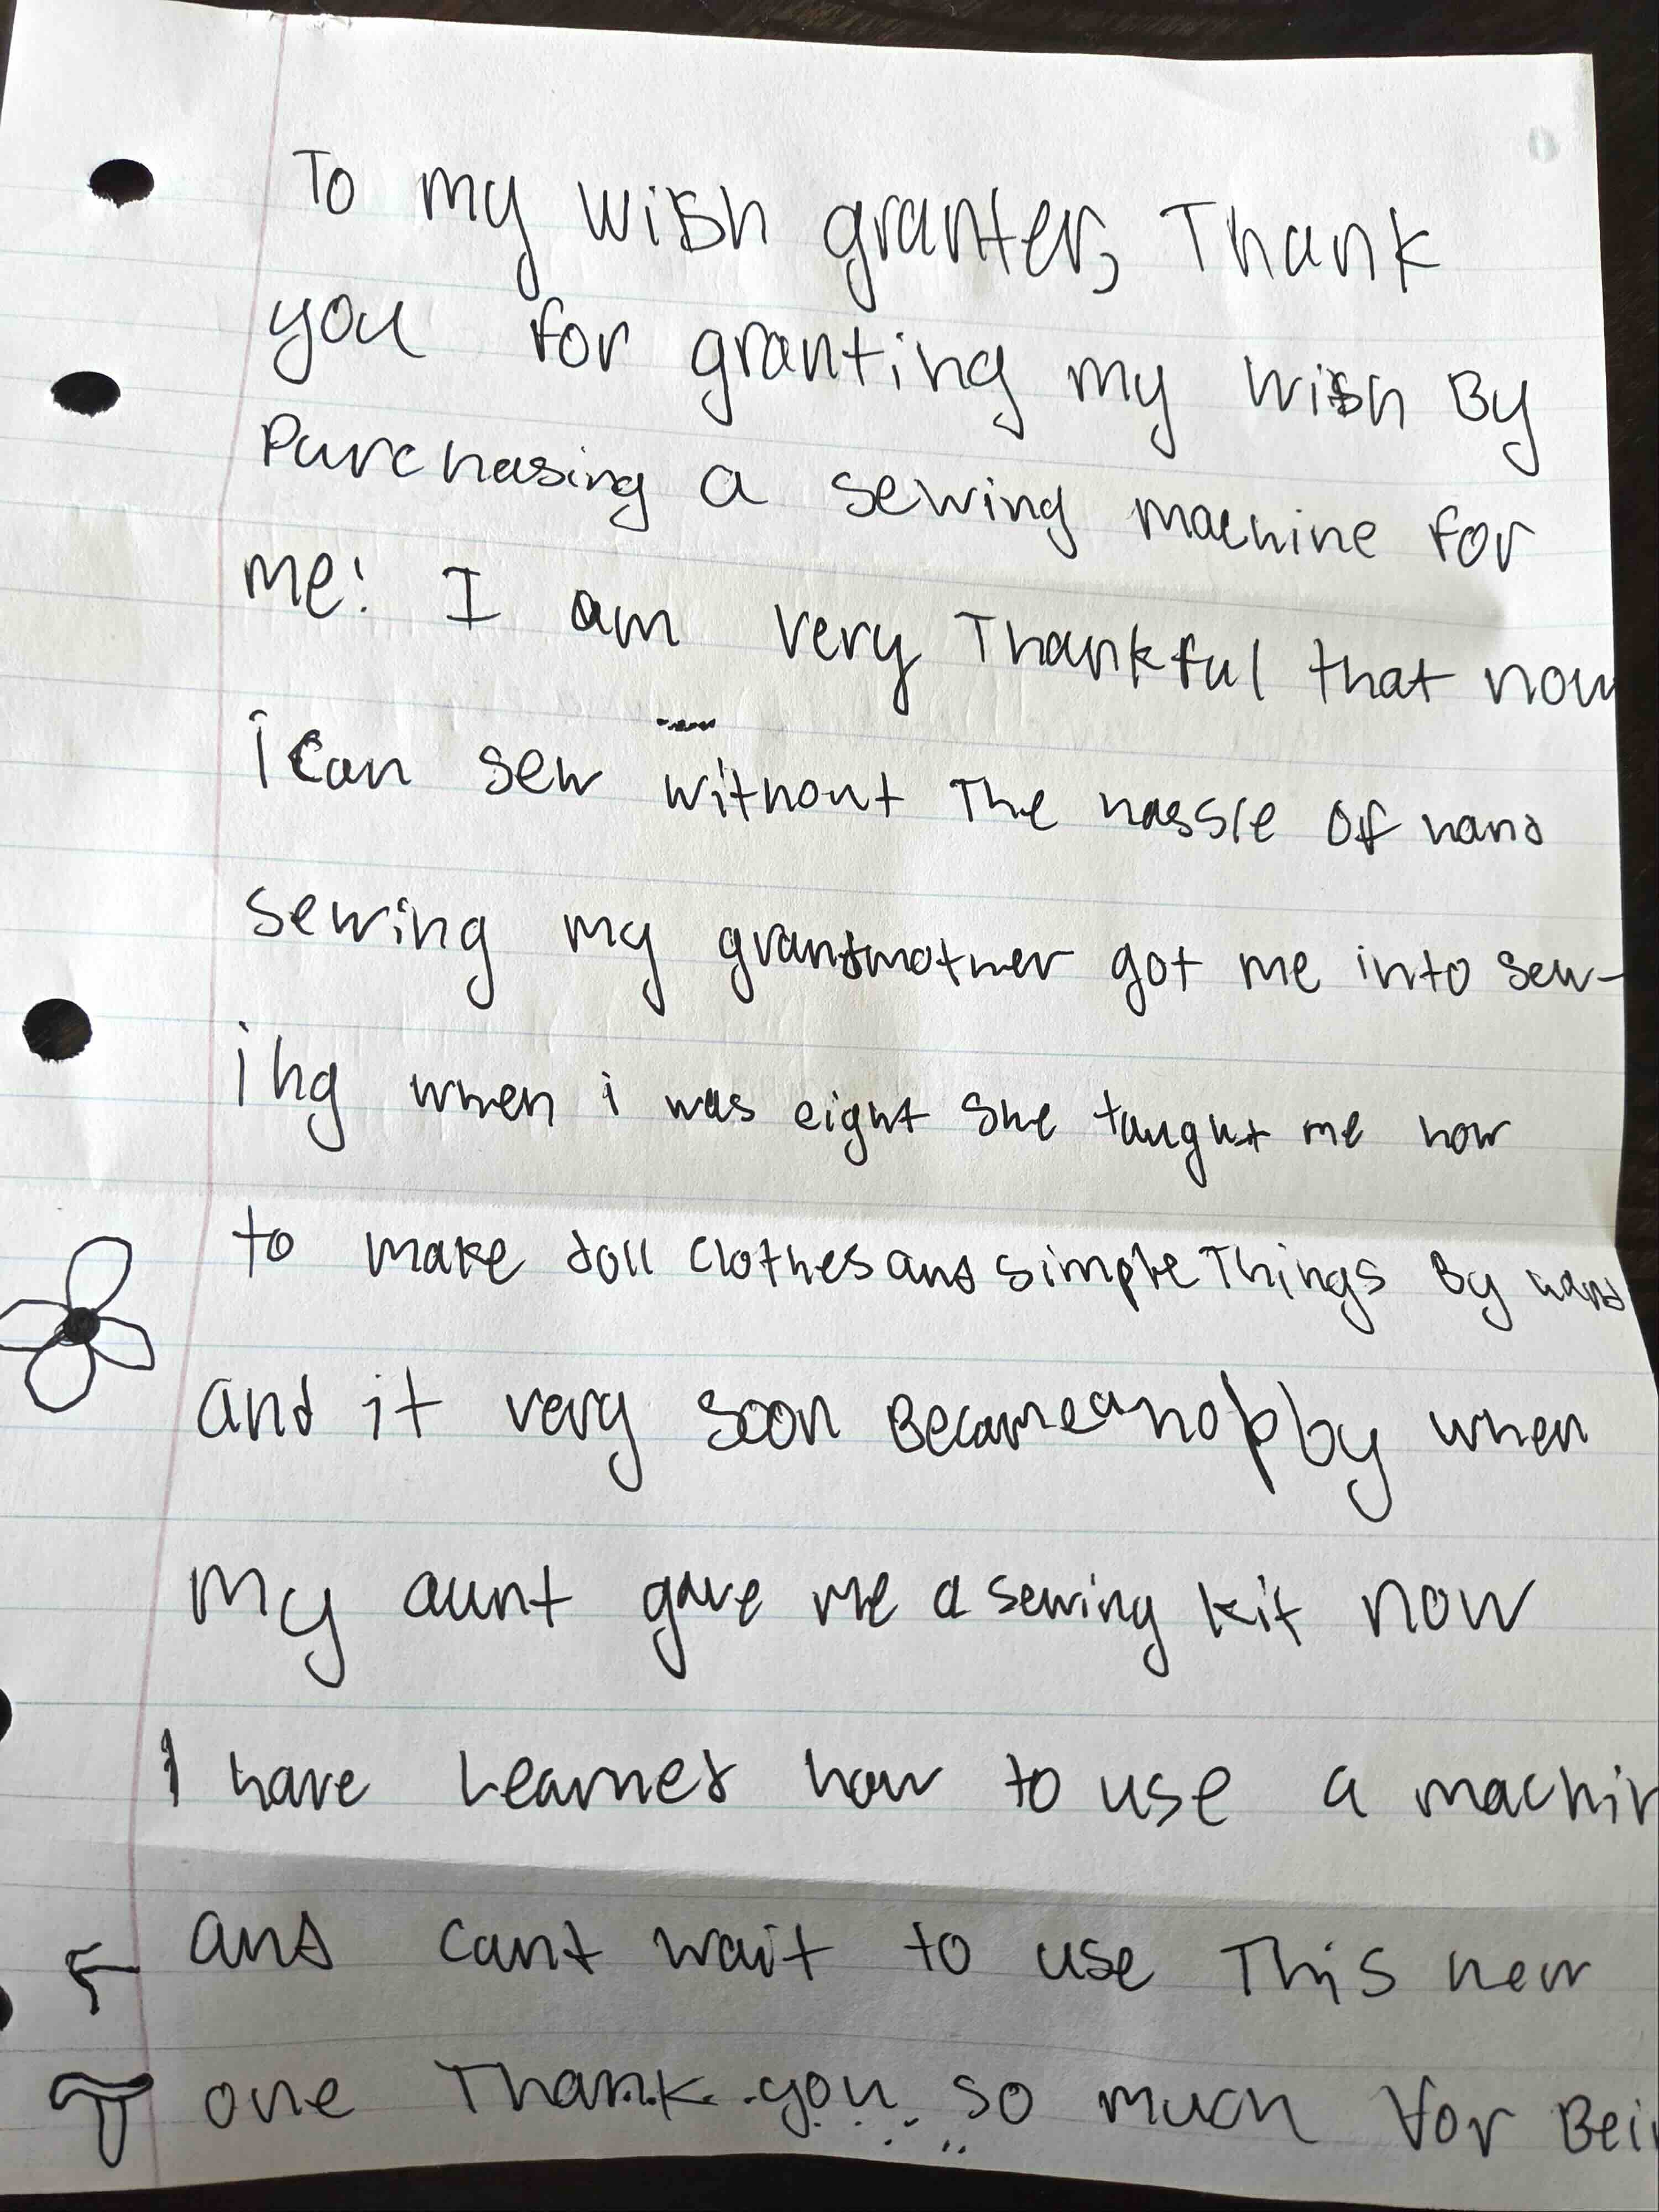 To my wish granter, Thank
you for granting my wish By
Purchasing a sewing machine for
me! I am very Thankful that now
i can sew without The hassle of hand
sewing my grandmother got me into sew-
ing when i was eight She taught me how
to make doll clothes and simple Things By hand
and it very soon Became a hobby when
my aunt gave me a sewing kit now
I have Learned how to use a machin
and cant wait to use This new
one Thank you so much for Bei